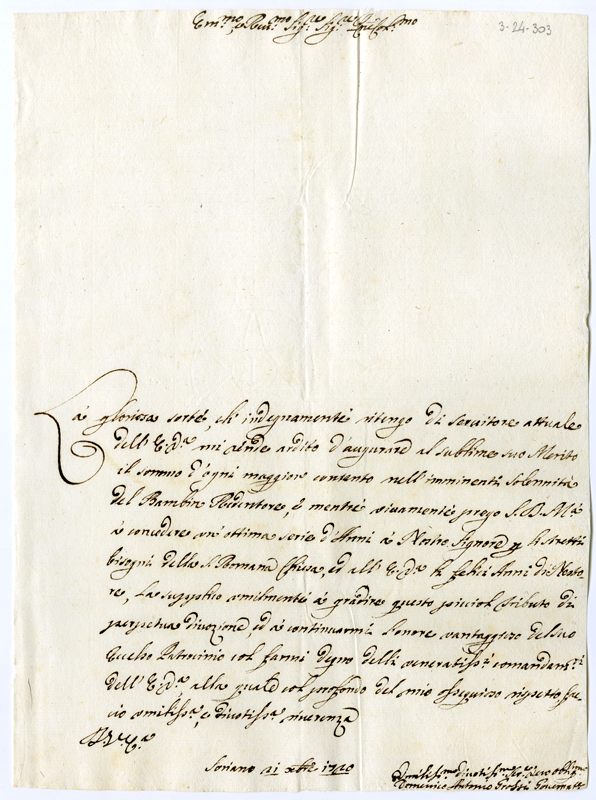 Em.mo, e Rev.mo Sig.re Sig.re Col.mo
3-24-303
La gloriosa sorte, ch'indegnamente ritengo di Servitore attuale
dell'E.V.a mi rende ardito d'augurare al sublime suo Merito
il sommo d'ogni maggior contento nell'imminenti Solennità
del Bambin Redentore, e mentre vivamente prego S.D.M.a
à concedere un'ottima serie d'Anni à Nostro Signore p li stretti
bisogni della S. Romana Chiesa, ed all'E.V.a li felici Anni di Nesto-
re, La supplico umilmente à gradire questo picciol tributo di
perpetua divozione, ed à continuarmi l'onore vantaggioso del suo
Eccelso Patrocinio col farmi degno delli veneratiss.i comandam.ti
dell'E.V.a alla quale col profondo del mio ossequioso rispetto fac-
cio umiliss.a, e divotiss.a riverenza
D.V.E.a
Soriano 21 xbre 1720
Umiliss.mo divotiss.mo Ser.re vero obblig.mo
Domenico Antonio Grossi Governat.re